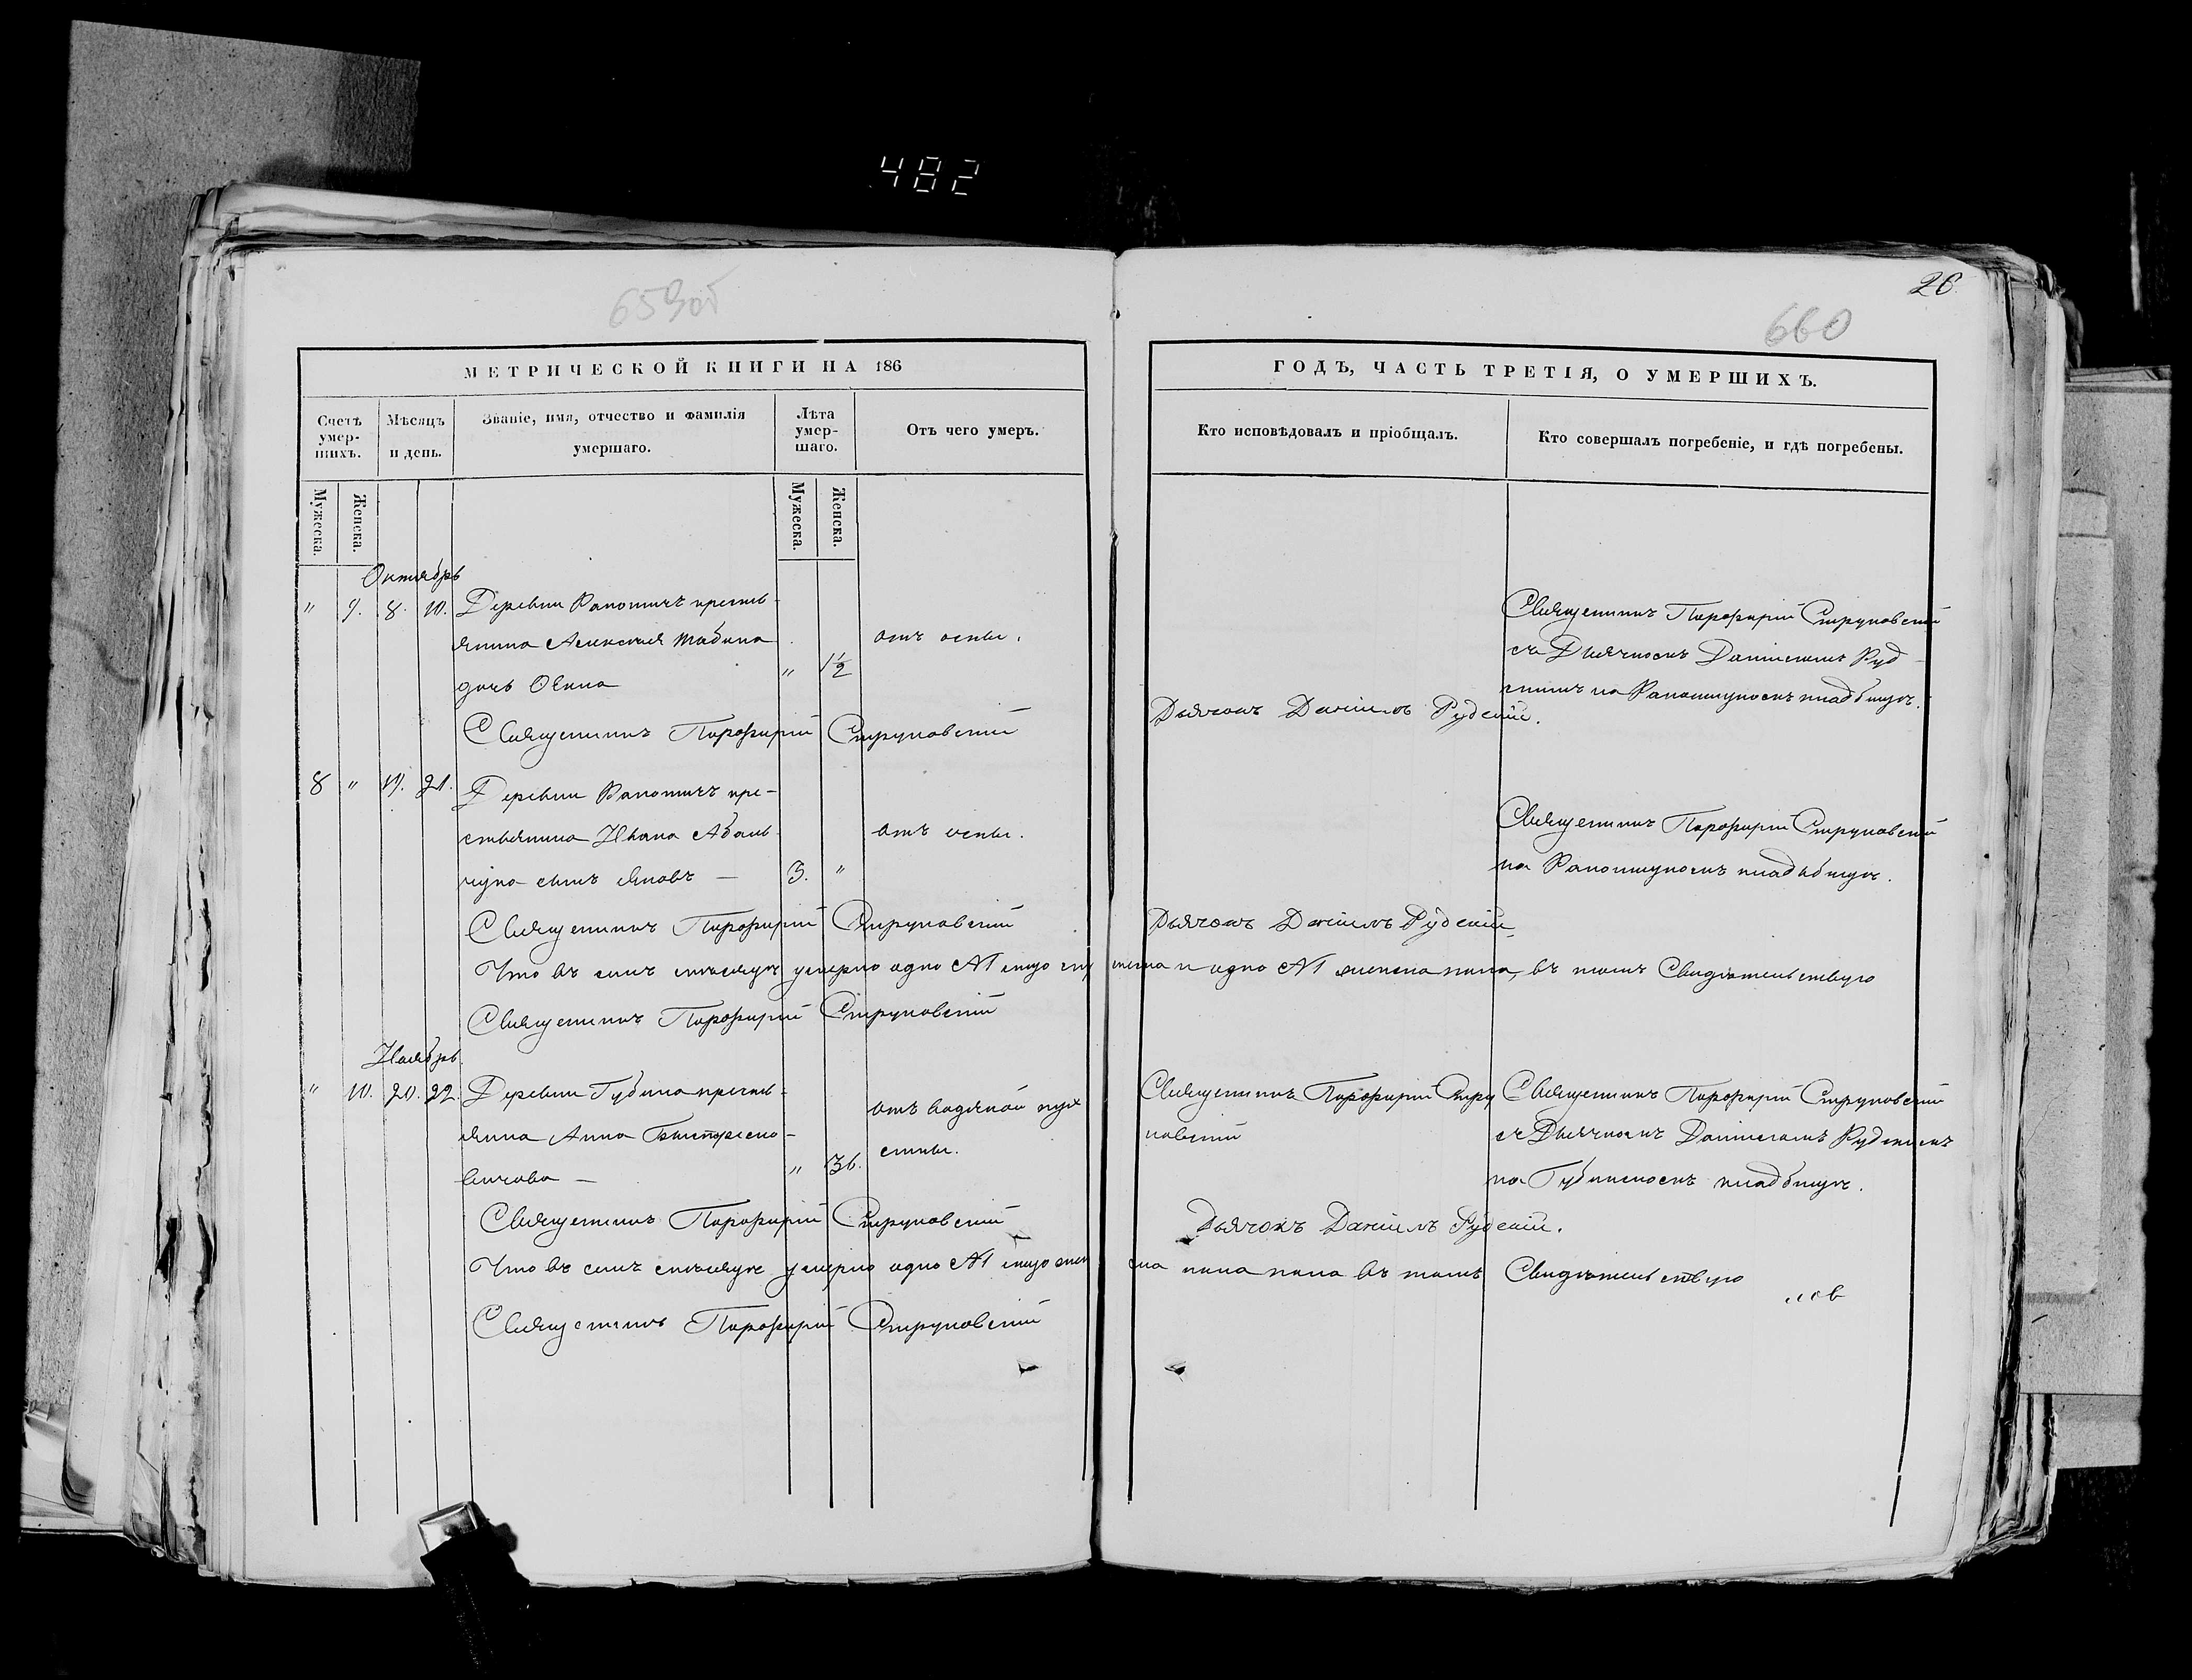 482
659об
26
660
МЕТРИЧЕСКОЙ КНИГИ НА 186
ГОДЪ, ЧАСТЬ ТРЕТІЯ, О УМЕРШИХЪ.
Счетъ умер-шихъ.
Мѣсяцъ и день.
Званіе, имя, отчество и фамилія умершаго.
Лѣта умер-шаго.
Отъ чего умеръ.
Кто исповѣдовалъ и пріобщалъ.
Кто совершалъ погребеніе, и гдѣ погребены.
Мужеска.
Женска.
Мужеска.
Женска.
Октябрь
" 9. 8. 10. Деревни кресть-
янина Алексѣя
дочь " 1½
отъ оспы.
Священникъ Порфирій Струковскій
съ Дьячкомъ Даніиломъ Руд-
скимъ на кладбищѣ.
Священникъ Порфирій Струковскій
Дьячокъ Даніилъ Рудскій.
8 " 19. 21. Деревни кре-
стьянина Ивана
сынъ Яковъ — 3. "
отъ оспы.
Священникъ Порфирій Струковскій
на кладбищѣ.
Священникъ Порфирій Струковскій
Дьячокъ Даніилъ Рудскій
Что въ семъ мѣсяцѣ умерло одно №1 и одно №1 женска пола, въ томъ Свидѣтельствую
Священникъ Порфирій Струковскій
Ноябрь
" 10. 20. 22. Деревни Губина кресть-
янка Анна
" 36.
отъ водяной
Священникъ Порфирій Стру
ковскій
Священникъ Порфирій Струковскій
съ Дьячкомъ Даніиломъ Рудскимъ
на Губинскомъ кладбищѣ.
Священникъ Порфирій Струковскій
Дьячокъ Даніилъ Рудскій.
Что въ семъ мѣсяцѣ умерло одно №1 жен ска пола въ томъ Свидѣтельствую
Священникъ Порфирій Струковскій